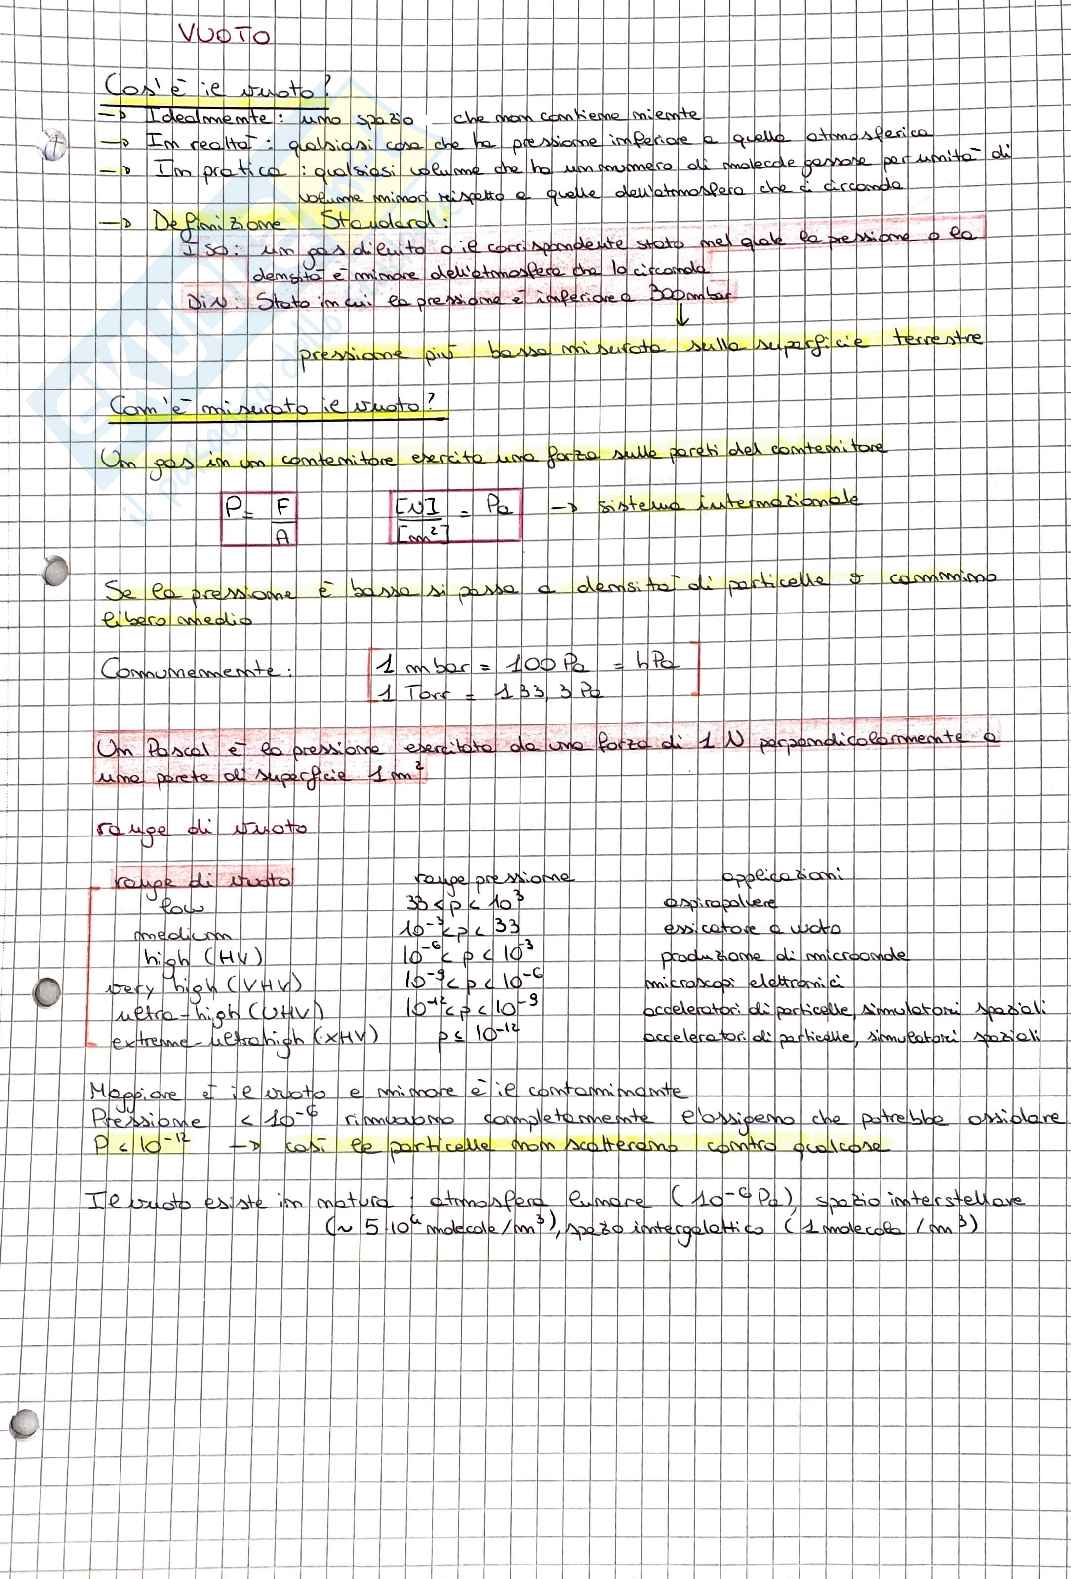 VUOTO
Cos'è il vuoto?
→ Idealmente: uno spazio che non contiene niente
→ In realtà: qualsiasi cosa che ha pressione inferiore a quella atmosferica
→ In pratica: qualsiasi volume che ha un numero di molecole gassose per unità di
volume minori rispetto a quelle dell'atmosfera che ci circonda
→ Definizione Standard:
ISO: un gas diluito o il corrispondente stato nel quale la pressione o la
densità è minore dell'atmosfera che lo circonda
DiN: Stato in cui la pressione è inferiore a 300mbar
↓
pressione più bassa misurata sulla superficie terrestre
Com'è misurato il vuoto?
Un gas in un contenitore esercita una forza sulle pareti del contenitore
P = F/A [N]/[m²] = Pa → sistema internazionale
Se la pressione è bassa si passa a densità di particelle o cammino
libero medio
Comunemente: 1 mbar = 100 Pa = hPa
1 Torr = 133,3 Pa
Un Pascal è la pressione esercitata da una forza di 1 N perpendicolarmente a
una parete di superficie 1m²
range di vuoto
range di vuoto range pressione applicazioni
low 33<p<10³ aspirapolvere
medium 10⁻³<p<33 essicatore a vuoto
high (HV) 10⁻⁶<p<10⁻³ produzione di microonde
very high (VHV) 10⁻⁹<p<10⁻⁶ microscopi elettronici
ultra-high (UHV) 10⁻¹²<p<10⁻⁹ acceleratori di particelle, simulatori spaziali
extreme-ultrahigh (XHV) p≤10⁻¹² acceleratori di particelle, simulatori spaziali
Maggiore è il vuoto e minore è il contaminante
Pressione <10⁻⁶ rimuovono completamente l'ossigeno che potrebbe ossidare
P<10⁻¹² → così le particelle non scatteranno contro qualcosa
Il vuoto esiste in natura: atmosfera lunare (10⁻⁹ Pa), spazio interstellare
(~ 5 10⁴ molecole/m³), spazio intergalattico (1 molecola/m³)